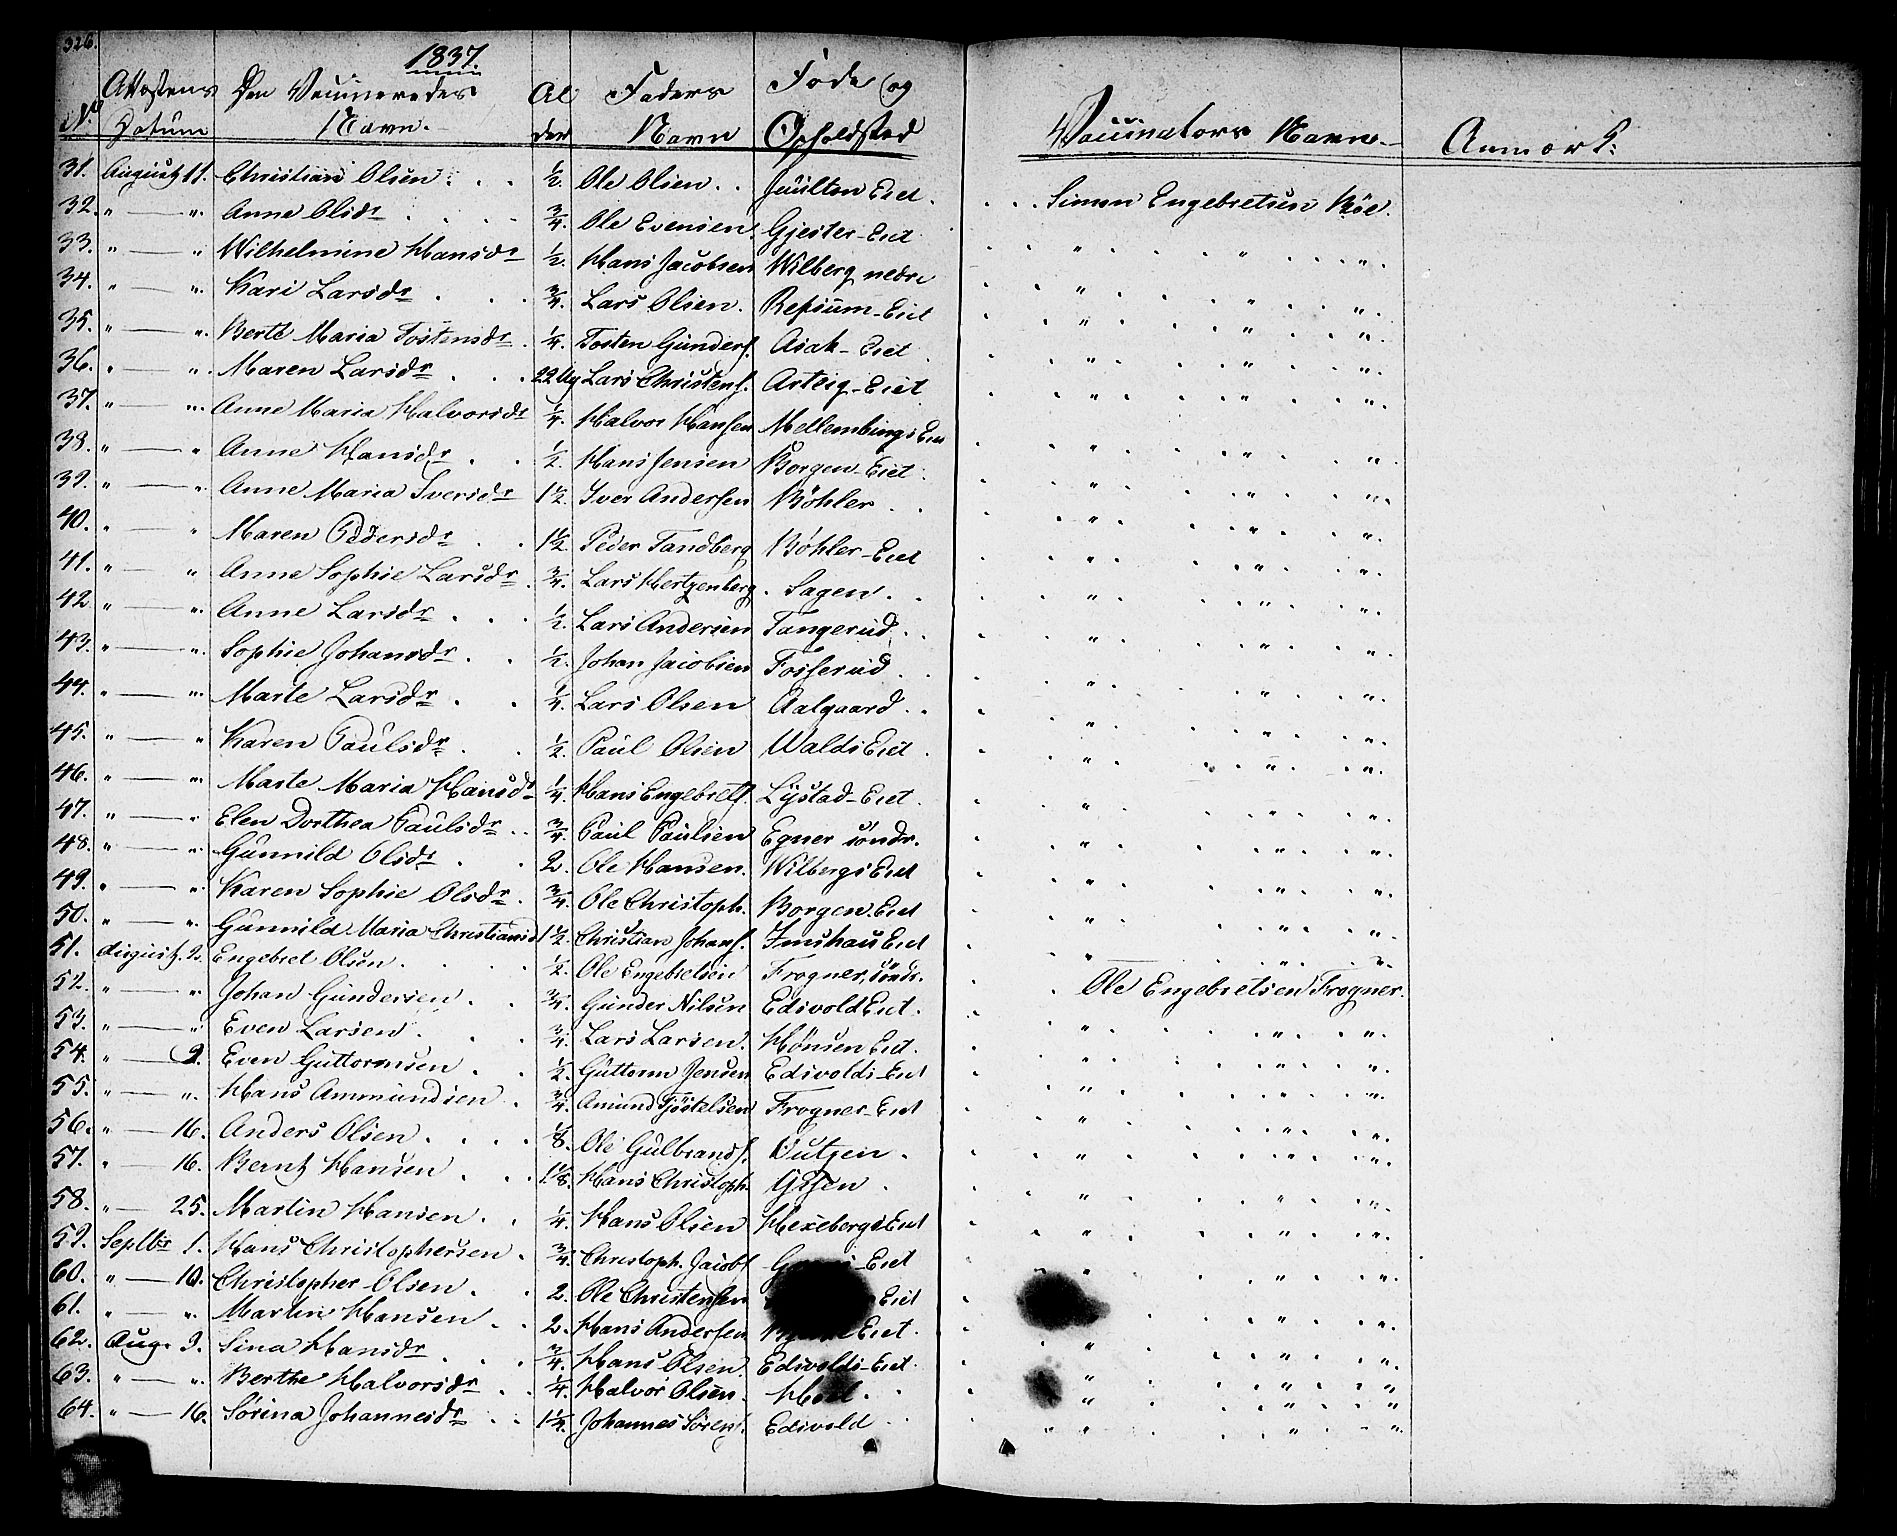 326.
1837.
No Attestens Datum Den Vaccineredes Navn. Alder Faders Navn Føde og Opholdsted Vaccinators Navn Anmærk:
31. August 11. Christian Olsen . . . ½. Ole Olsen . . Eiet . . . . Simen Engebretsen Böe.
32. " — ". Anne Olsdr . . . . ¾. Ole Evensen. Gjester-Eiet . . " . . " . . . . ".
33. " — " Wilhelmine Hansdr ½. Hans Jacobsen Wilberg nedre . . " . . " . . ".
34. " — ". Kari Larsdr . . . ¾. Lars Olsen. Refsum-Eiet . . " . . " . . ".
35. " — ". Berthe Maria Tostensdr . ¼. Tosten Gunders. Asak-Eiet . . " . . " . . ".
36. " — ". Maren Larsdr . . . 22 Ug Lars Christens. Arteig-Eiet . . " . . " . . ".
37. " — ". Anne Maria Halvorsdr ¼. Halvor Hansen Eiet . . " . . " . . ".
38. " — " Anne Hansdr . . ½. Hans Jensen Borgen-Eiet . . " . . " . . ".
39. " — ". Anne Maria Iversdr 1½. Iver Andersen Böhler . . . . " . . " . . ".
40. " — " Maren Pedersdr . . 1½. Peder Tandberg Böhler-Eiet . . " . . " . . ".
41. " — " Anne Sophie Larsdr . ¾. Lars Hertzenberg. Sagen . . . . " . . " . . ".
42 " — ". Anne Larsdr . . . ½. Lars Andersen Tangerud . . . . " . . " . . ".
43. " — ". Sophie Johansdr . . ½. Johan Jacobsen Fosserud . . . . " . . " . . ".
44. " — ". Marte Larsdr . . ¼. Lars Olsen Aalgaard . . . . " . . " . . ".
45. " — " Karen Paulsdr . . ½. Paul Olsen Walds Eiet . . . " . . " . . ".
46. " — ". Marte Maria Hansdr ¼. Hans Engebrets. Lystad-Eiet . . . " . . " . . ".
47. " — " Elen Dorthea Paulsdr . . ¾. Paul Paulsen Egner söndr. . . " . . " . . ".
48. " — ". Gunnild Olsdr . . 2. Ole Hansen. Wilbergs Eiet . . " . . " . . ".
49. " — ". Karen Sophie Olsdr . ¾. Ole Christoph. Borgen. Eiet . . " . . " . . ".
50. " — ". Gunnild Maria Christiansd. 1½. Christian Johans. Eiet . . " . . " . . ".
51. August. 2. Engebret Olsen . . . . ½. Ole Engebretsen Frogner, söndr. . Ole Engebretsen Frogner.
52. " — " Johan Gundersen . . ¾. Gunder Nilsen Edsvold Eiet . . . " . . " . . ".
53. " — " Even Larsen . . . ¾. Lars Larsen. Hönsen Eiet . . . " . . " . . ".
54. " — 2. Even Guttormsen . . ½. Guttorm Jensen Edsvolds-Eiet . . " . . " . . ".
55. " — ". Hans Ammundsen . ¾. Amund Frogner-Eiet . . " . . " . . ".
56. " — 16. Anders Olsen . . . . ⅛. Ole Gulbrands. . . . " . . " . . ".
57. " — 16. Berntz Hansen . . . 1⅛. Hans Christoph. . . . " . . " . . ".
58. " — 25. Martin Hansen . . ¼. Hans Olsen Hexebergs Eiet . . " . . " . . ".
59. Septbr 1. Hans Christophersen . ¾. Christoph. Jacobs. Eiet . . " . . " . . ".
60. " — 10. Christopher Olsen . . 2. Ole Christensen Eiet . . " . . ".
61. " — ". Martin Hansen . . 2. Hans Andersen Eiet . . . " . . " . . ".
62. Aug. 9. Sina Hansdr . . . ¾. Hans Olsen. Edsvolds-Eiet . . " . . " . . ".
63. " — ". Berthe Halvorsdr . . ¼. Halvor Olsen. . . . " . . " . . "
64. " — 16. Sörina Johannesdr . . 1¼. Johannes Sörens. Edsvold . . . . " . . " . . ".